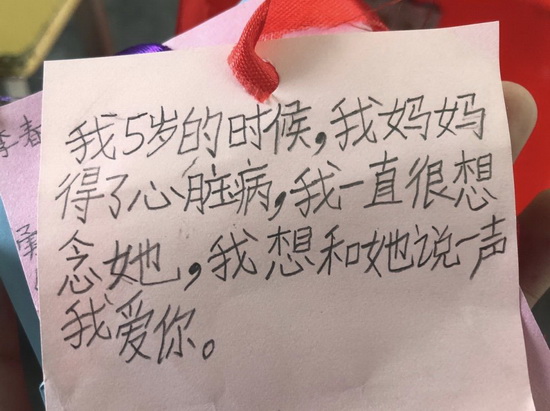 我5岁的时候,我妈妈
得了心脏病,我一直很想
念她,我想和她说一声
我爱你。
春